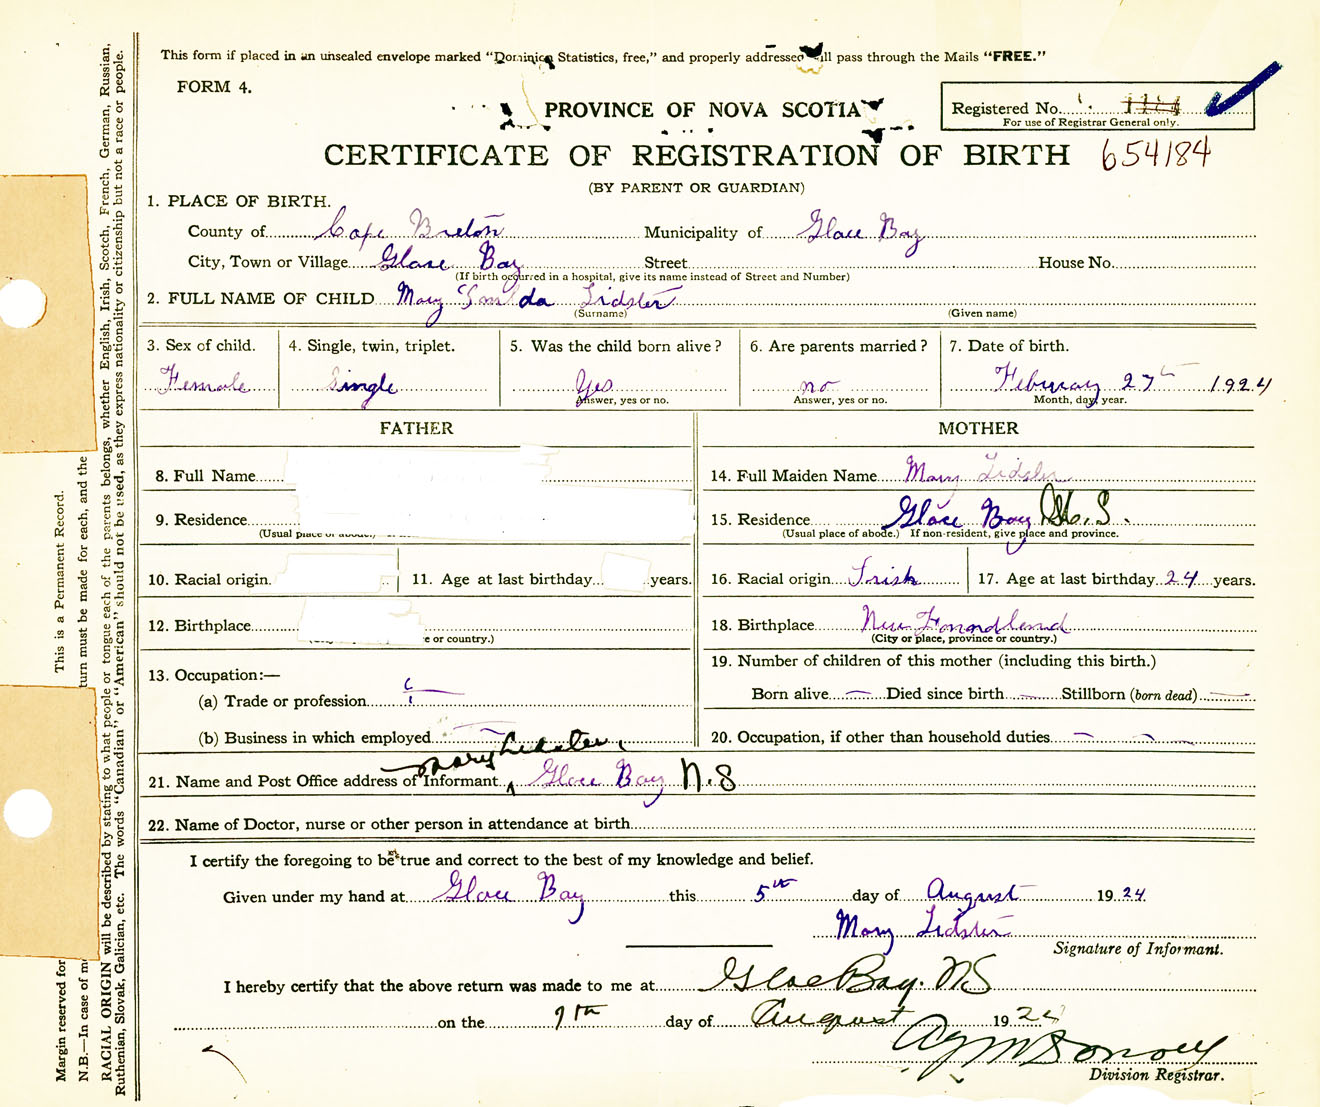 This form if placed in an unsealed envelope marked “Dominion Statistics, free,” and properly addressed will pass through the Mails “FREE.”
FORM 4.
PROVINCE OF NOVA SCOTIA
Registered No.
For use of Registrar General only.
CERTIFICATE OF REGISTRATION OF BIRTH 654184
(BY PARENT OR GUARDIAN)
1. PLACE OF BIRTH.
County of Cape Breton Municipality of Glace Bay
City, Town or Village Glace Bay Street House No.
(If birth occurred in a hospital, give its name instead of Street and Number)
2. FULL NAME OF CHILD Mary Lidster
(Surname) (Given name)
3. Sex of child. 4. Single, twin, triplet. 5. Was the child born alive? 6. Are parents married? 7. Date of birth.
Female Single Yes no February 27th 1924
Answer, yes or no. Answer, yes or no. Month, day, year.
FATHER
8. Full Name
9. Residence
(Usual place of abode.)
10. Racial origin. 11. Age at last birthday years.
12. Birthplace
e or country.)
13. Occupation:—
(a) Trade or profession
(b) Business in which employed
MOTHER
14. Full Maiden Name Mary Lidster
15. Residence Glace Bay N.S.
(Usual place of abode.) If non-resident, give place and province.
16. Racial origin Irish 17. Age at last birthday 24 years.
18. Birthplace New Foundland
(City or place, province or country.)
19. Number of children of this mother (including this birth.)
Born alive — Died since birth — Stillborn (born dead) —
20. Occupation, if other than household duties — —
Mary Lidster,
21. Name and Post Office address of Informant Glace Bay N.S
22. Name of Doctor, nurse or other person in attendance at birth
I certify the foregoing to be true and correct to the best of my knowledge and belief.
Given under my hand at Glace Bay this 5th day of August 1924
Mary Lidster
Signature of Informant.
I hereby certify that the above return was made to me at Glace Bay. NS
on the 9th day of August 1924
Division Registrar.
Margin reserved for This is a Permanent Record.
N.B.—In case of mo turn must be made for each, and the
RACIAL ORIGIN will be described by stating to what people or tongue each of the parents belongs, whether English, Irish, Scotch, French, German, Russian,
Ruthenian, Slovak, Galician, etc. The words “Canadian” or “American” should not be used, as they express nationality or citizenship but not a race or people.